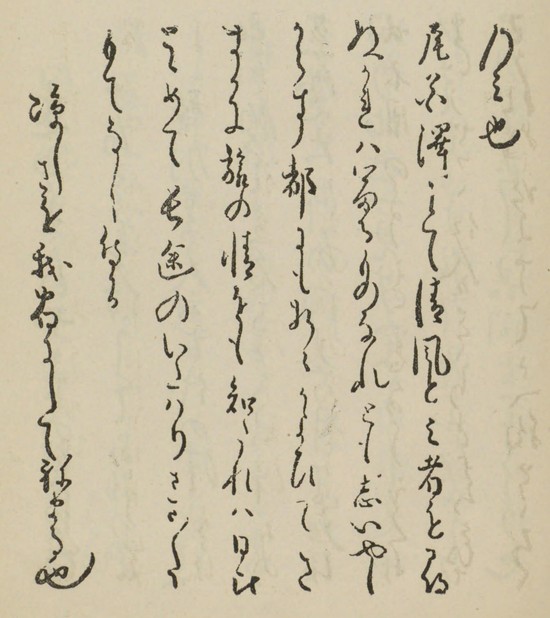 のみ也
尾花澤にて清風と云者を尋
ぬかれハ富るものなれとも志いやし
からす都にも折々かよひてさ
すかに旅の情をも知たれハ日比
とゝめて長途のいたハりさま〱に
もてなし侍る
涼しさを我宿にしてねまる也